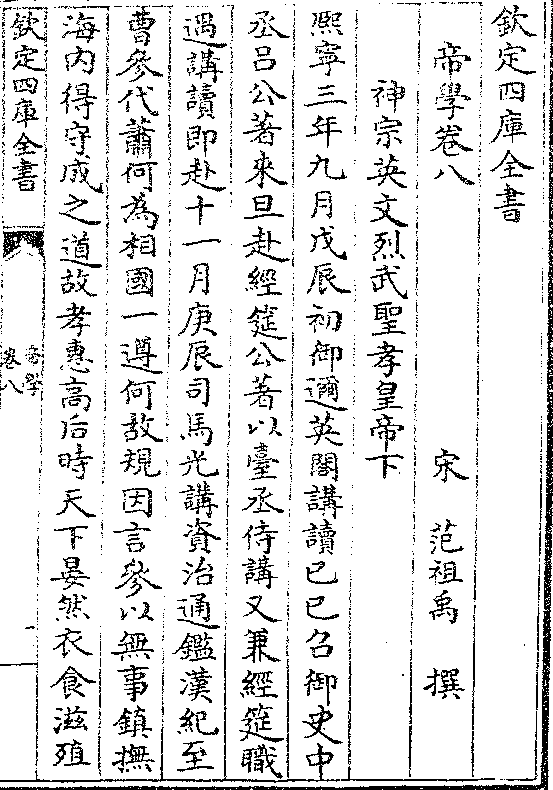 欽定四庫全書
帝學卷八
宋 范祖禹 撰
神宗英文烈武聖孝皇帝下
熙寧三年九月戊辰初御邇英閣講讀已巳召御史中
丞吕公著來旦赴經筵公著以臺丞侍講又兼經筵職
遇講讀即赴十一月庚辰司馬光講資治通鑑漢紀至
曹參代蕭何為相國一遵何故規因言參以無事鎮撫
海内得守成之道故孝惠高后時天下晏然衣食滋殖
欽定四庫全書
帝學
卷八
一